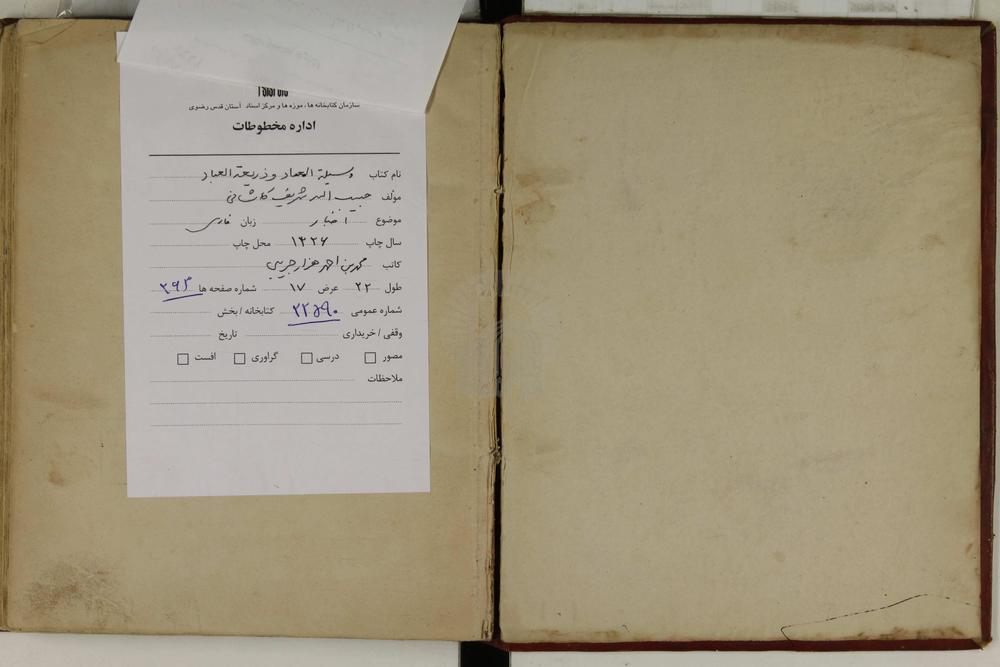 سازمان کتابخانه ها ، موزه ها و مرکز اسناد آستان قدس رضوی
اداره مخطوطات
نام کتاب وسیلة المعاد و ذریعة العباد
مؤلف حبیب الله شریف کاشانی
موضوع اخبار زبان فارسی
سال چاپ ۱۳۲۶ محل چاپ
کاتب محمد بن احمد هزارجریبی
طول ۲۲ عرض ۱۷ شماره صفحه ها ۲۹۳
شماره عمومی ۲۲۵۹۰ کتابخانه / بخش
وقفی / خریداری تاریخ
مصور درسی گراوری افست
ملاحظات